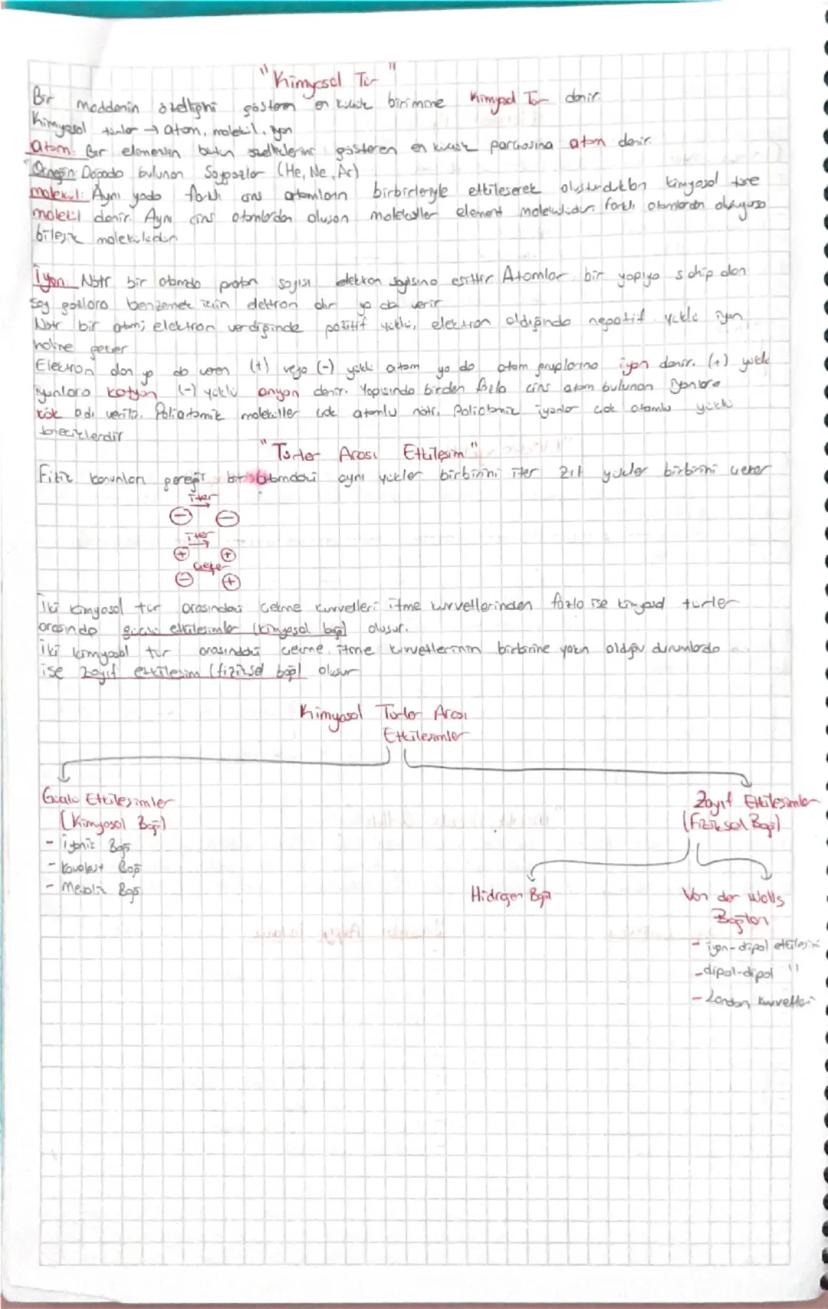 "Kimyasal Tür"
Bir maddenin özelliğini gösteren en küçük birimine Kimyasal Tür denir.
Kimyasal türler → atom, molekül, iyon
atom: Bir elementin bütün özelliklerini gösteren en küçük parçasına atom denir.
Örneğin: Doğada bulunan Soygazlar (He, Ne, Ar)
molekül: Aynı yada farklı cins atomların birbirleriyle etkileserek oluşturdukları kimyasal türe
molekül denir. Aynı cins atomlardan oluşan moleküller element molekülüdür. farklı atomlardan oluşuyorsa
bileşik molekülüdür.
İyon: Nötr bir atomda proton sayısı elektron sayısına eşittir. Atomlar bir yapıya sahip olan
Soy gazlara benzemek için elektron alır ya da verir
Nötr bir atom; elektron verdiğinde pozitif yüklü, elektron aldığında negatif yüklü iyon
haline geçer
Elektron alan ya da veren (+) veya (-) yüklü atom ya da atom gruplarına iyon denir. (+) yüklü
iyonlara katyon (-) yüklü anyon denir. Yapısında birden fazla cins atom bulunan iyonlara
kök adı verilir. Poliatomik moleküller çok atomlu nötr, Poliatomik iyonlar çok atomlu yüklü
taneciklerdir
"Türler Arası Etkileşim"
Fizik kanunları gereği bir atomdaki aynı yükler birbirini iter zıt yükler birbirini çeker
iter
- -
iter
+ +
çeker
- +
İki kimyasal tür arasındaki çekme kuvvetleri itme kuvvetlerinden fazla ise kimyasal türler
arasında güçlü etkileşimler (kimyasal bağ) oluşur.
İki kimyasal tür arasındaki çekme, itme kuvvetlerinin birbirine yakın olduğu durumlarda
ise zayıf etkileşim (fiziksel bağ) oluşur
Kimyasal Türler Arası
Etkileşimler
Güçlü Etkileşimler
(Kimyasal Bağ)
- İyonik Bağ
- Kovalent Bağ
- Metalik Bağ
Zayıf Etkileşimler
(Fiziksel Bağ)
Hidrojen Bağı
Van der Walls
Bağları
- iyon-dipol etkileşimi
- dipol-dipol "
- London kuvvetleri